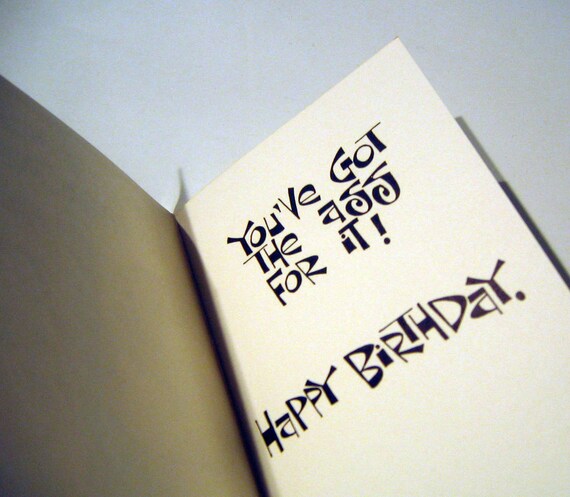 YOU'VE GOT
THE ASS
FOR iT!
HAPPY BiRTHDAY.